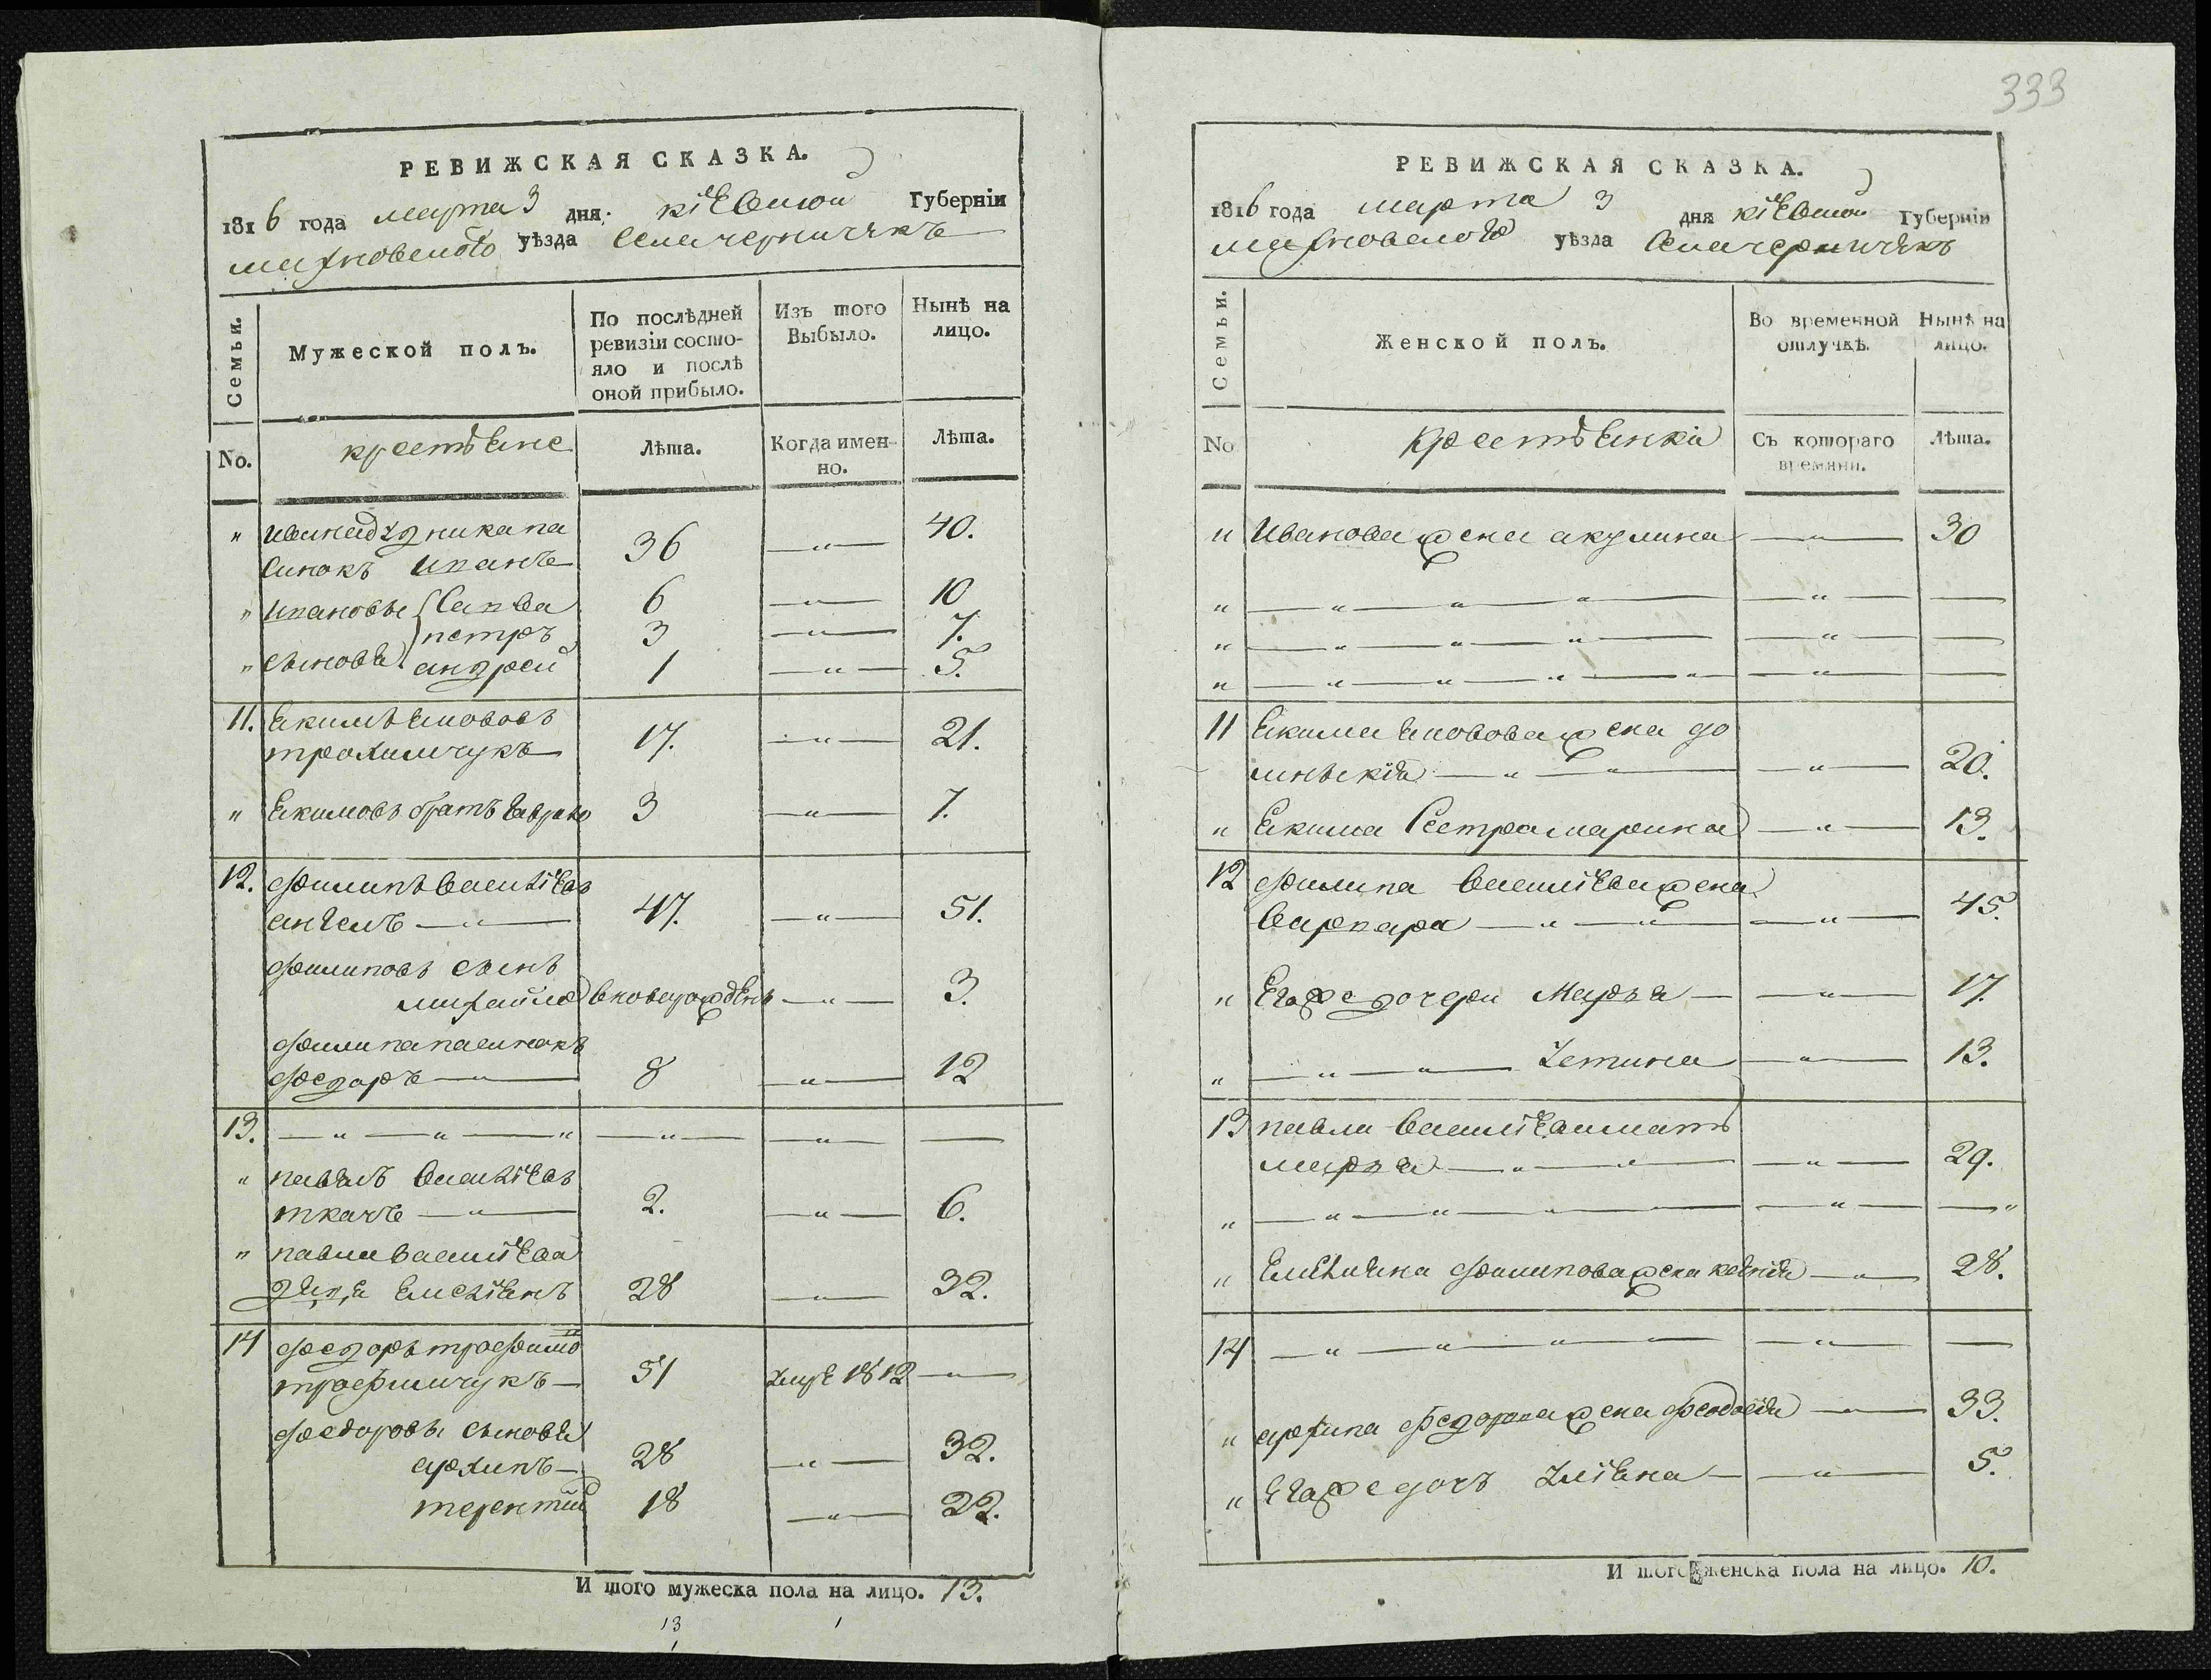 РЕВИЖСКАЯ СКАЗКА.
1816 года марта 3 дня. кіевской Губерніи
махновского уѣзда Села чернички
Семьи.
Мужеской полъ.
По послѣдней ревизіи состояло и послѣ оной прибыло.
Изъ того Выбыло.
Нынѣ на лицо.
No.
крестяне
Лѣта.
Когда именно.
Лѣта.
"
36 — " — 40.
" Ивановы Савва 6 — " — 10
петръ 3 — " — 7.
" сыновя андрей 1 — " — 5.
11. Екимъ
трохимчукъ 17. — " — 21.
" Екимовъ братъ гаврило 3 — " — 7.
12. филипъ василіевъ
47. — " — 51.
филиповъ сынъ
михайло вноварожденъ — " — 3.
филипа пасинокъ
федоръ — " — 8 — " — 12
13. — " — " — " — " — " — " —
" павелъ василіевъ
ткачъ — " — 2. — " — 6.
" павла василіева
дядя 28 — " — 32.
14 федоръ трофимо
трофимчукъ — 51 умре 1812 — " —
федоровы сыновя
архипъ — 28 — " — 32.
терентій 18 — " — 22.
И того мужеска пола на лицо. 13.
13
1
1
333
РЕВИЖСКАЯ СКАЗКА.
1816 года марта 3 дня кіевской Губерніи
махновского уѣзда Села чернички
Семьи.
Женской полъ.
Во временной отлучкѣ.
Нынѣ на лицо.
No
крестянки
Съ котораго времяни.
Лѣта.
" Иванова жена акулина — " — 30
" — " — " — " — — " — —
" — " — " — " — — " — —
" — " — " — " — " — " — —
11 Екима жена до
— " — " — " — 20.
" Екима Сестра марина — " — 13.
12 филипа василіева жена
варвара — " — " — " — 45.
" Егоже дочери Маря — — " — 17.
" — " — " — устина — " — 13.
13 павла василіева мать
маря — " — " — " — 29.
" — " — " — " — — " — — "
" филипова жена — " — 28.
14 — " — " — " — — " — —
" архипа федорова жена феодосія — " — 33.
" Егоже дочъ уліяна — — " — 5.
И того женска пола на лицо. 10.